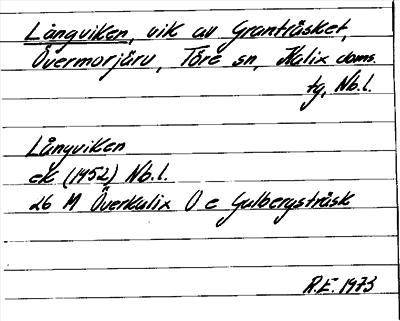 Långviken, vik av Granträsket,
Övermorjärv, Töre sn, Kalix doms.
tg, Nb.l.
Långviken
ek (1452) Nb.l.
26 M Överkalix O e Gulbergsträsk
R.E. 1973